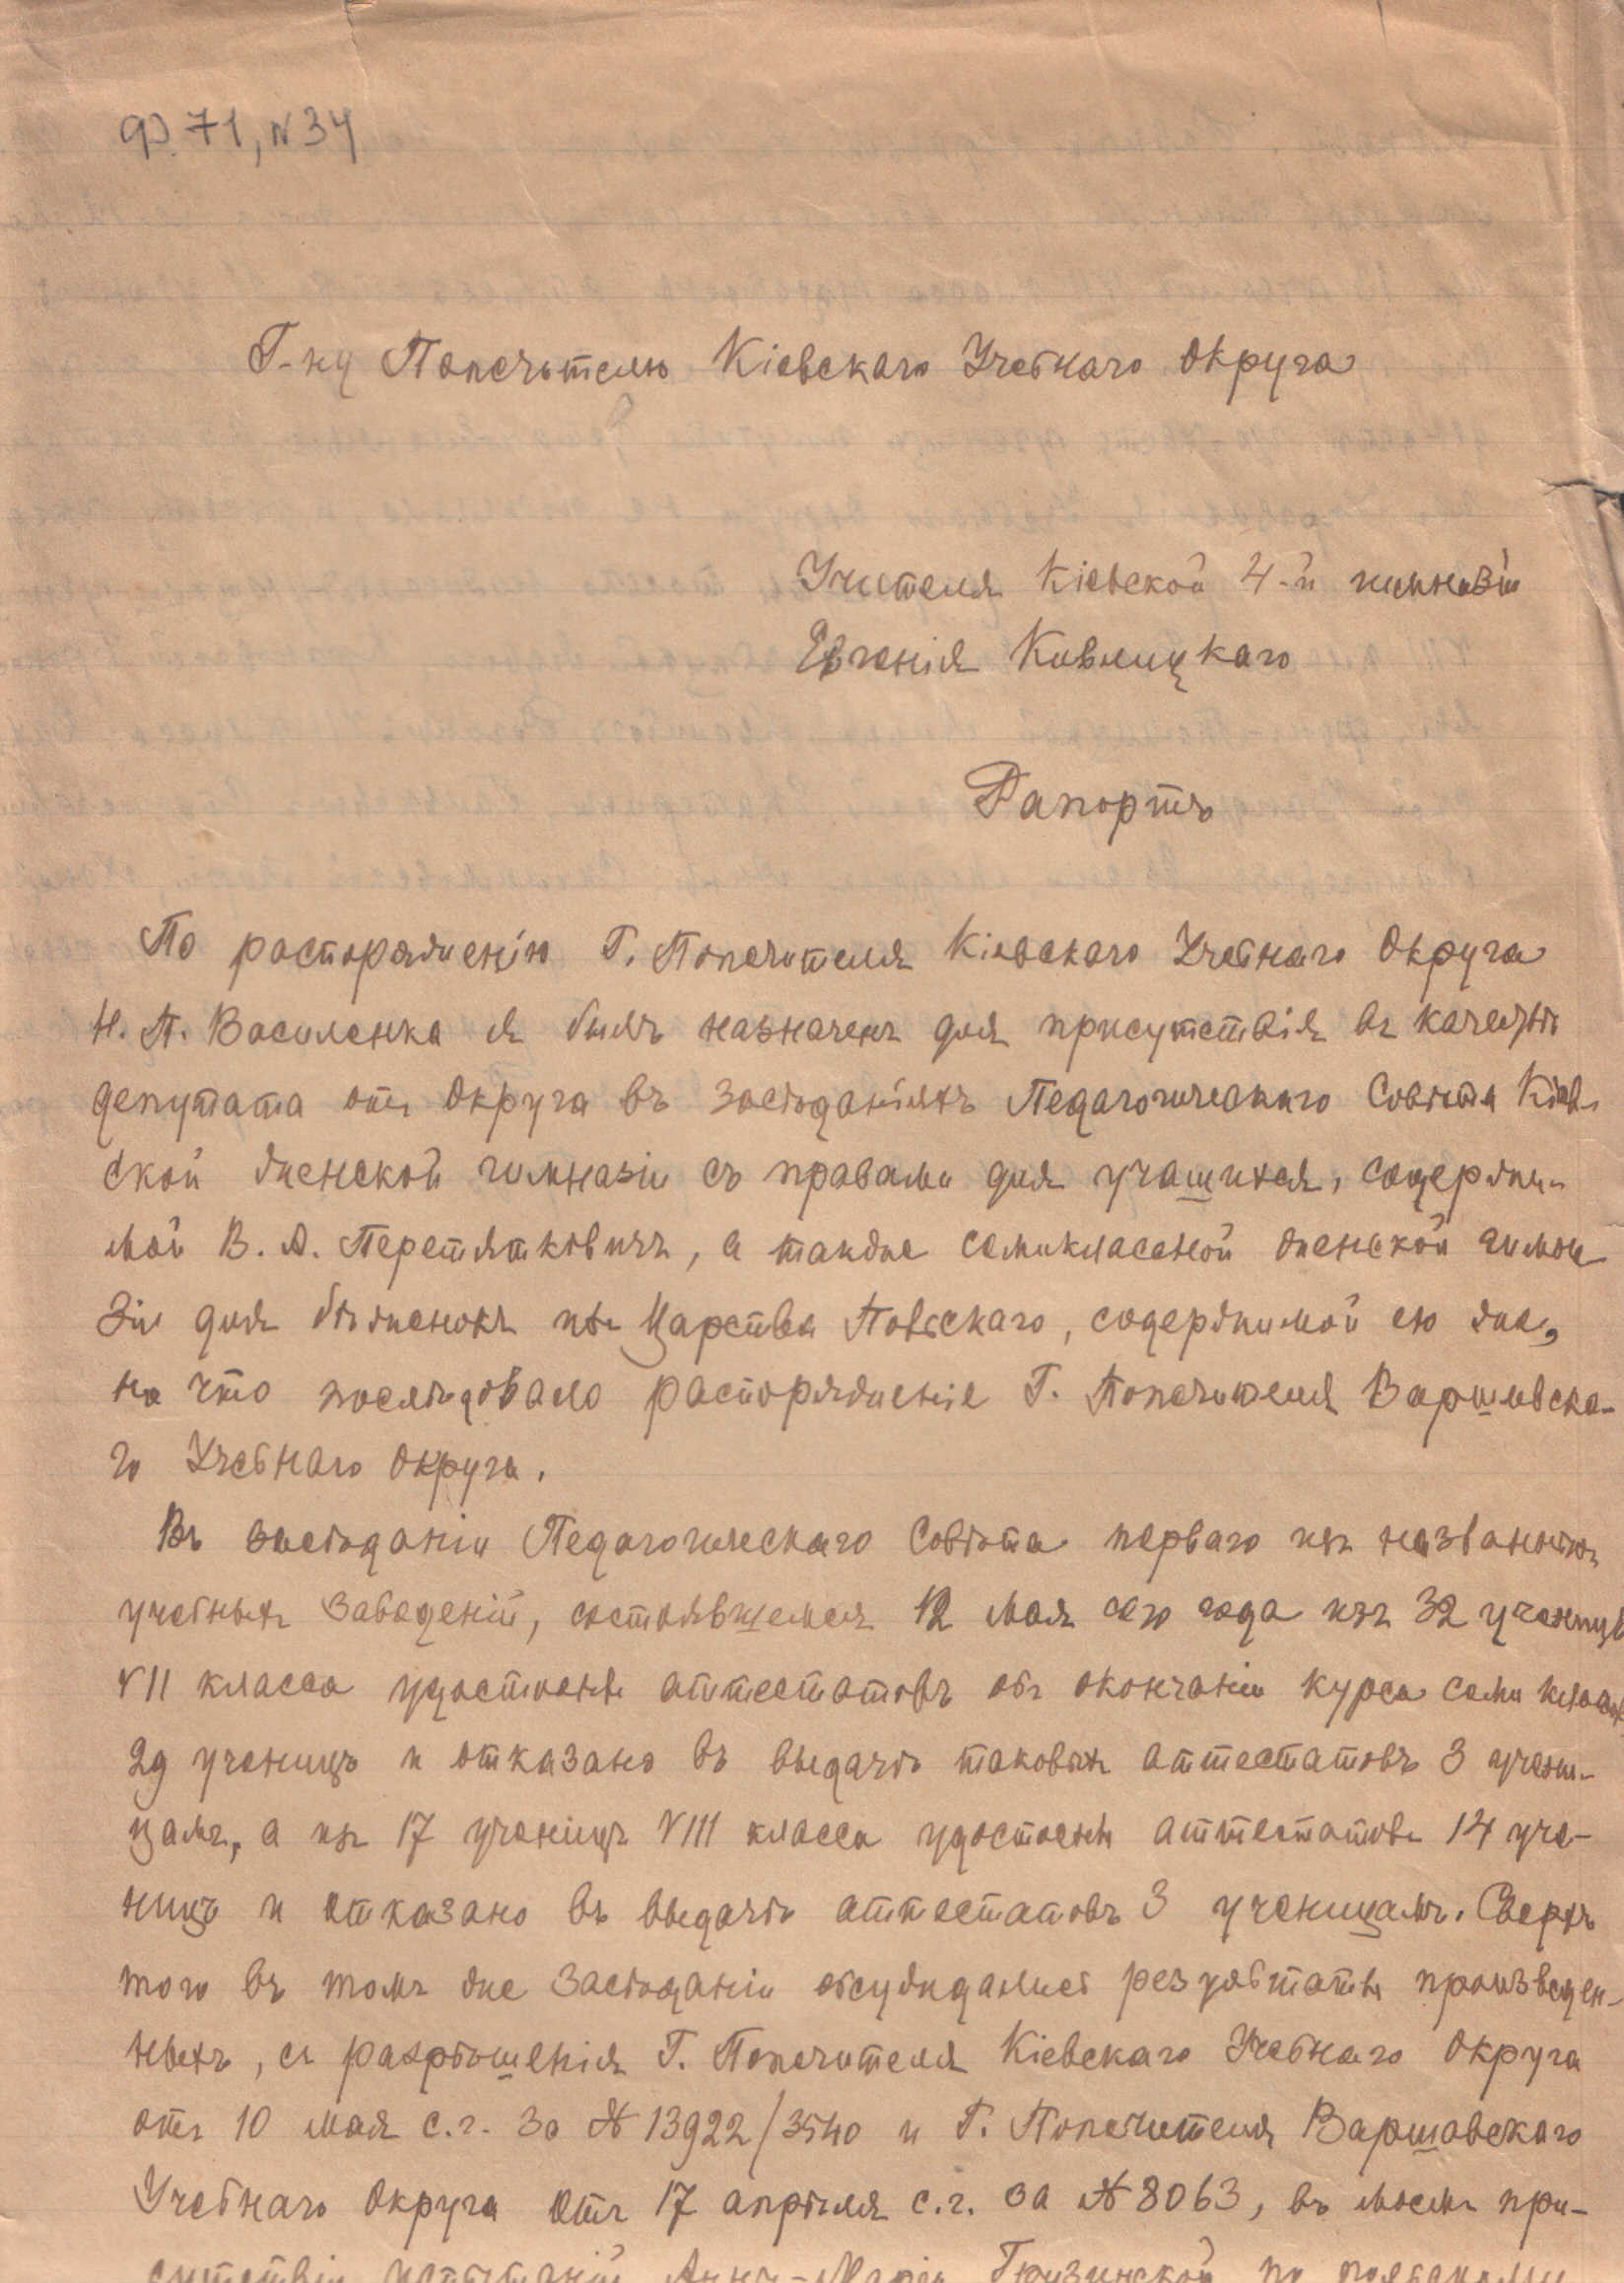 Ф. 71, N 34
Г-ну Попечителю Кіевскаго Учебнаго Округа
Учителя Кіевской 4-й гимназіи
Евгенія Кивлицкаго
Рапортъ
По распоряженію Г. Попечителя Кіевскаго Учебнаго Округа
Н. П. Василенка я былъ назначенъ для присутствія въ качествѣ
депутата отъ Округа въ засѣданіяхъ Педагогическаго Совѣта Кіев-
ской женской гимназіи съ правами для учащихся, содержи-
мой В. А. Перетятковичъ, а также семиклассной женской гимна-
зіи для бѣженокъ изъ Царства Польскаго, содержимой ею же,
на что послѣдовало распоряженіе Г. Попечителя Варшавска-
го Учебнаго Округа.
Въ засѣданіи Педагогическаго Совѣта перваго изъ названныхъ
учебныхъ заведеній, состоявшемся 12 мая сего года изъ 32 ученицъ
VII класса удостоены аттестатовъ объ окончаніи курса семи классовъ
29 ученицъ и отказано въ выдачѣ таковыхъ аттестатовъ 3 учени-
цамъ, а изъ 17 ученицъ VIII класса удостоены аттестатовъ 14 уче-
ницъ и отказано въ выдачѣ аттестатовъ 3 ученицамъ. Сверхъ
того въ томъ же засѣданіи обсуждались результаты произведен-
ныхъ, съ разрѣшенія Г. Попечителя Кіевскаго Учебнаго Округа
отъ 10 мая с.г. за № 13922/3540 и Г. Попечителя Варшавскаго
Учебнаго Округа отъ 17 апрѣля с.г. за № 8063, въ моемъ при-
сутствіи испытаній Анны-Маріи Грузинской по польскому